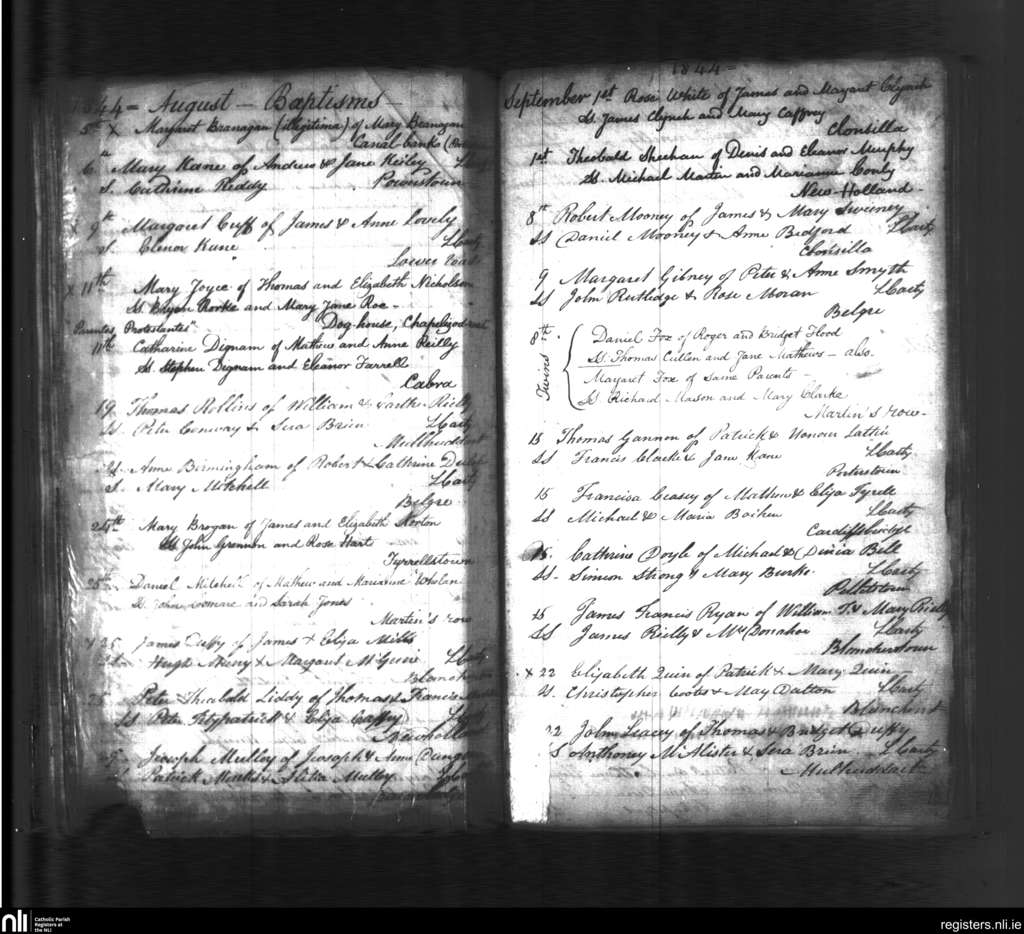 1844 = August - Baptisms -
5th X Margaret Branagan (illegitima) of Mary Branagan
Canal banks
6th Mary Kane of Andrew & Jane Keiley
S. Cathrine Reddy Powerstown
X 9th Margaret Cuff of James & Anne Lovely
S. Elenor Kane LCarty
Lower road
X 11th Mary Joyce of Thomas and Elizabeth Nicholson
Ss. Bryan Rorke and Mary Jane Roe -
"Parentes, Protestantes" Dog-house, Chapelizod road
11th Catharine Dignam of Mathew and Anne Reilly
Ss. Stephen Dignam and Eleanor Farrell
Cabra
19 Thomas Rollins of William & Reilly
Ss Peter Conway & Sera Brien LCarty
Mulhuddart
Anne Birmingham of Robert & Cathrine
S. Mary Mitchell LCarty
Belgre
24th Mary Brogan of James and Elizabeth Norton
Ss John Grennon and Rose Hart
Tyrrelstown
25th Daniel Mitchell of Mathew and Marianne Whelan
Ss. John and Sarah Jones
Martin's row
X 25 James Duffy of James & Eliza Mills
Hugh & Margaret McGuire LCarty
Peter Theobald Liddy of Thomas & Francis
Ss Peter Fitzpatrick & Eliza Caffry
Joseph Mulley of Joosoph & Anne
Patrick & Mulley
1844 =
September 1st Rose White of James and Margaret Clynch
Ss James Clynch and Mary Caffrey
Clonsilla
1st Theobald Sheehan of Denis and Eleanor Murphy
Ss. Michael Martin and Marianne Conly
New-Holland -
8th Robert Mooney of James & Mary Sweeney
SS Daniel Mooney & Anne Bedford LCarty
Clonsilla
9 Margaret Gibney of Peter & Anne Smyth
SS John Rutlidge & Rose Moran LCarty
Belgre
8th Twins Daniel Fox of Roger and Bridget Flood
Ss. Thomas Cullen and Jane Mathews - also.
Margaret Fox of same Parents -
Ss Richard Mason and Mary Clarke
Martin's row -
15 Thomas Gannon of Patrick & Honour
SS Francis Clarke & Jane Kane LCarty
Porterstown
15 Francisa Ceasey of Mathew & Eliza Tyrell
SS Michael & Maria LCarty
Cardiffsbridge
15. Cathrine Doyle of Michael & Dinia Bell
SS. Simeon Strong & Mary Burke. LCarty
Pelletstown
15 James Francis Ryan of William T. & Mary Rielly
SS James Rielly & Mrs Donahoe LCarty
Blanchardstown
X 22 Elizabeth Quin of Patrick & Mary Quin
Ss. Christopher Coates & May Dalton LCarty
Blanchardst
22 John Leacy of Thomas & Bridget Duffy
S Anthoney McAlister & Sera Brien. LCarty
Mulhuddart
nli
Catholic Parish
Registers at
the NLI
registers.nli.ie